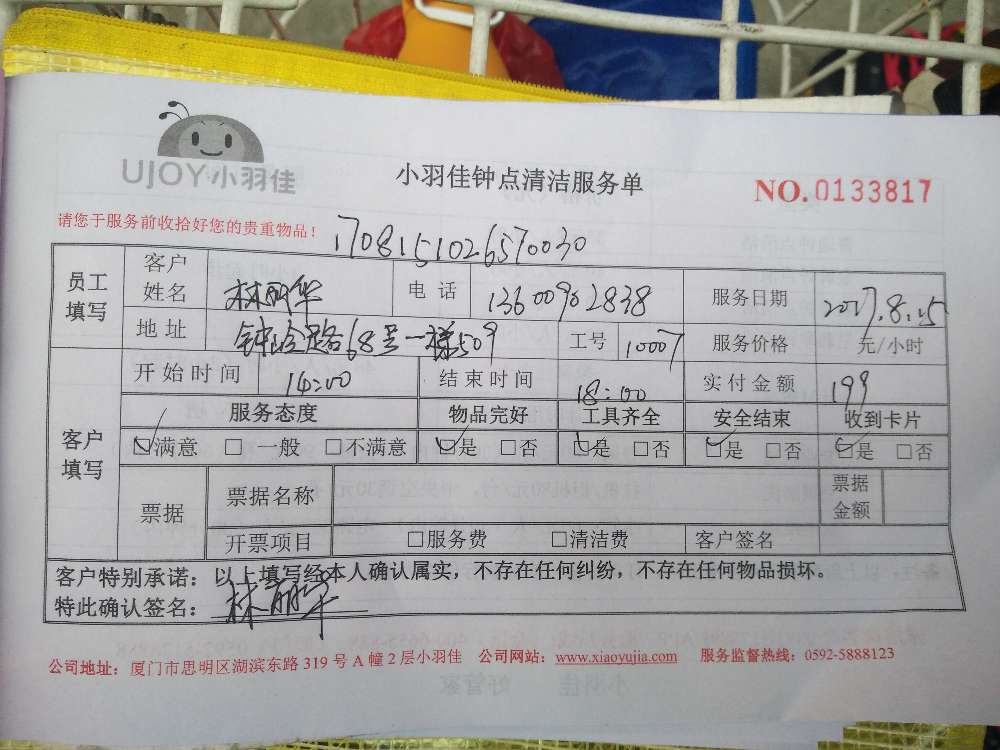 UJOY小羽佳
小羽佳钟点清洁服务单
NO.0133817
请您于服务前收拾好您的贵重物品！
1708151026570030
员工填写 客户姓名 林丽华 电话 13600902838 服务日期 2017.8.15
地址 68号 509 工号 10007 服务价格 元/小时
客户填写 开始时间 14:00 结束时间 18:00 实付金额 199
服务态度 物品完好 工具齐全 安全结束 收到卡片
☑满意 □一般 □不满意 ☑是 □否 ☑是 □否 ☑是 □否 ☑是 □否
票据 票据名称 票据金额
开票项目 □服务费 □清洁费 客户签名
客户特别承诺：以上填写经本人确认属实，不存在任何纠纷，不存在任何物品损坏。
特此确认签名：林丽华
公司地址：厦门市思明区湖滨东路 319 号 A 幢 2 层小羽佳 公司网站：www.xiaoyujia.com 服务监督热线：0592-5888123